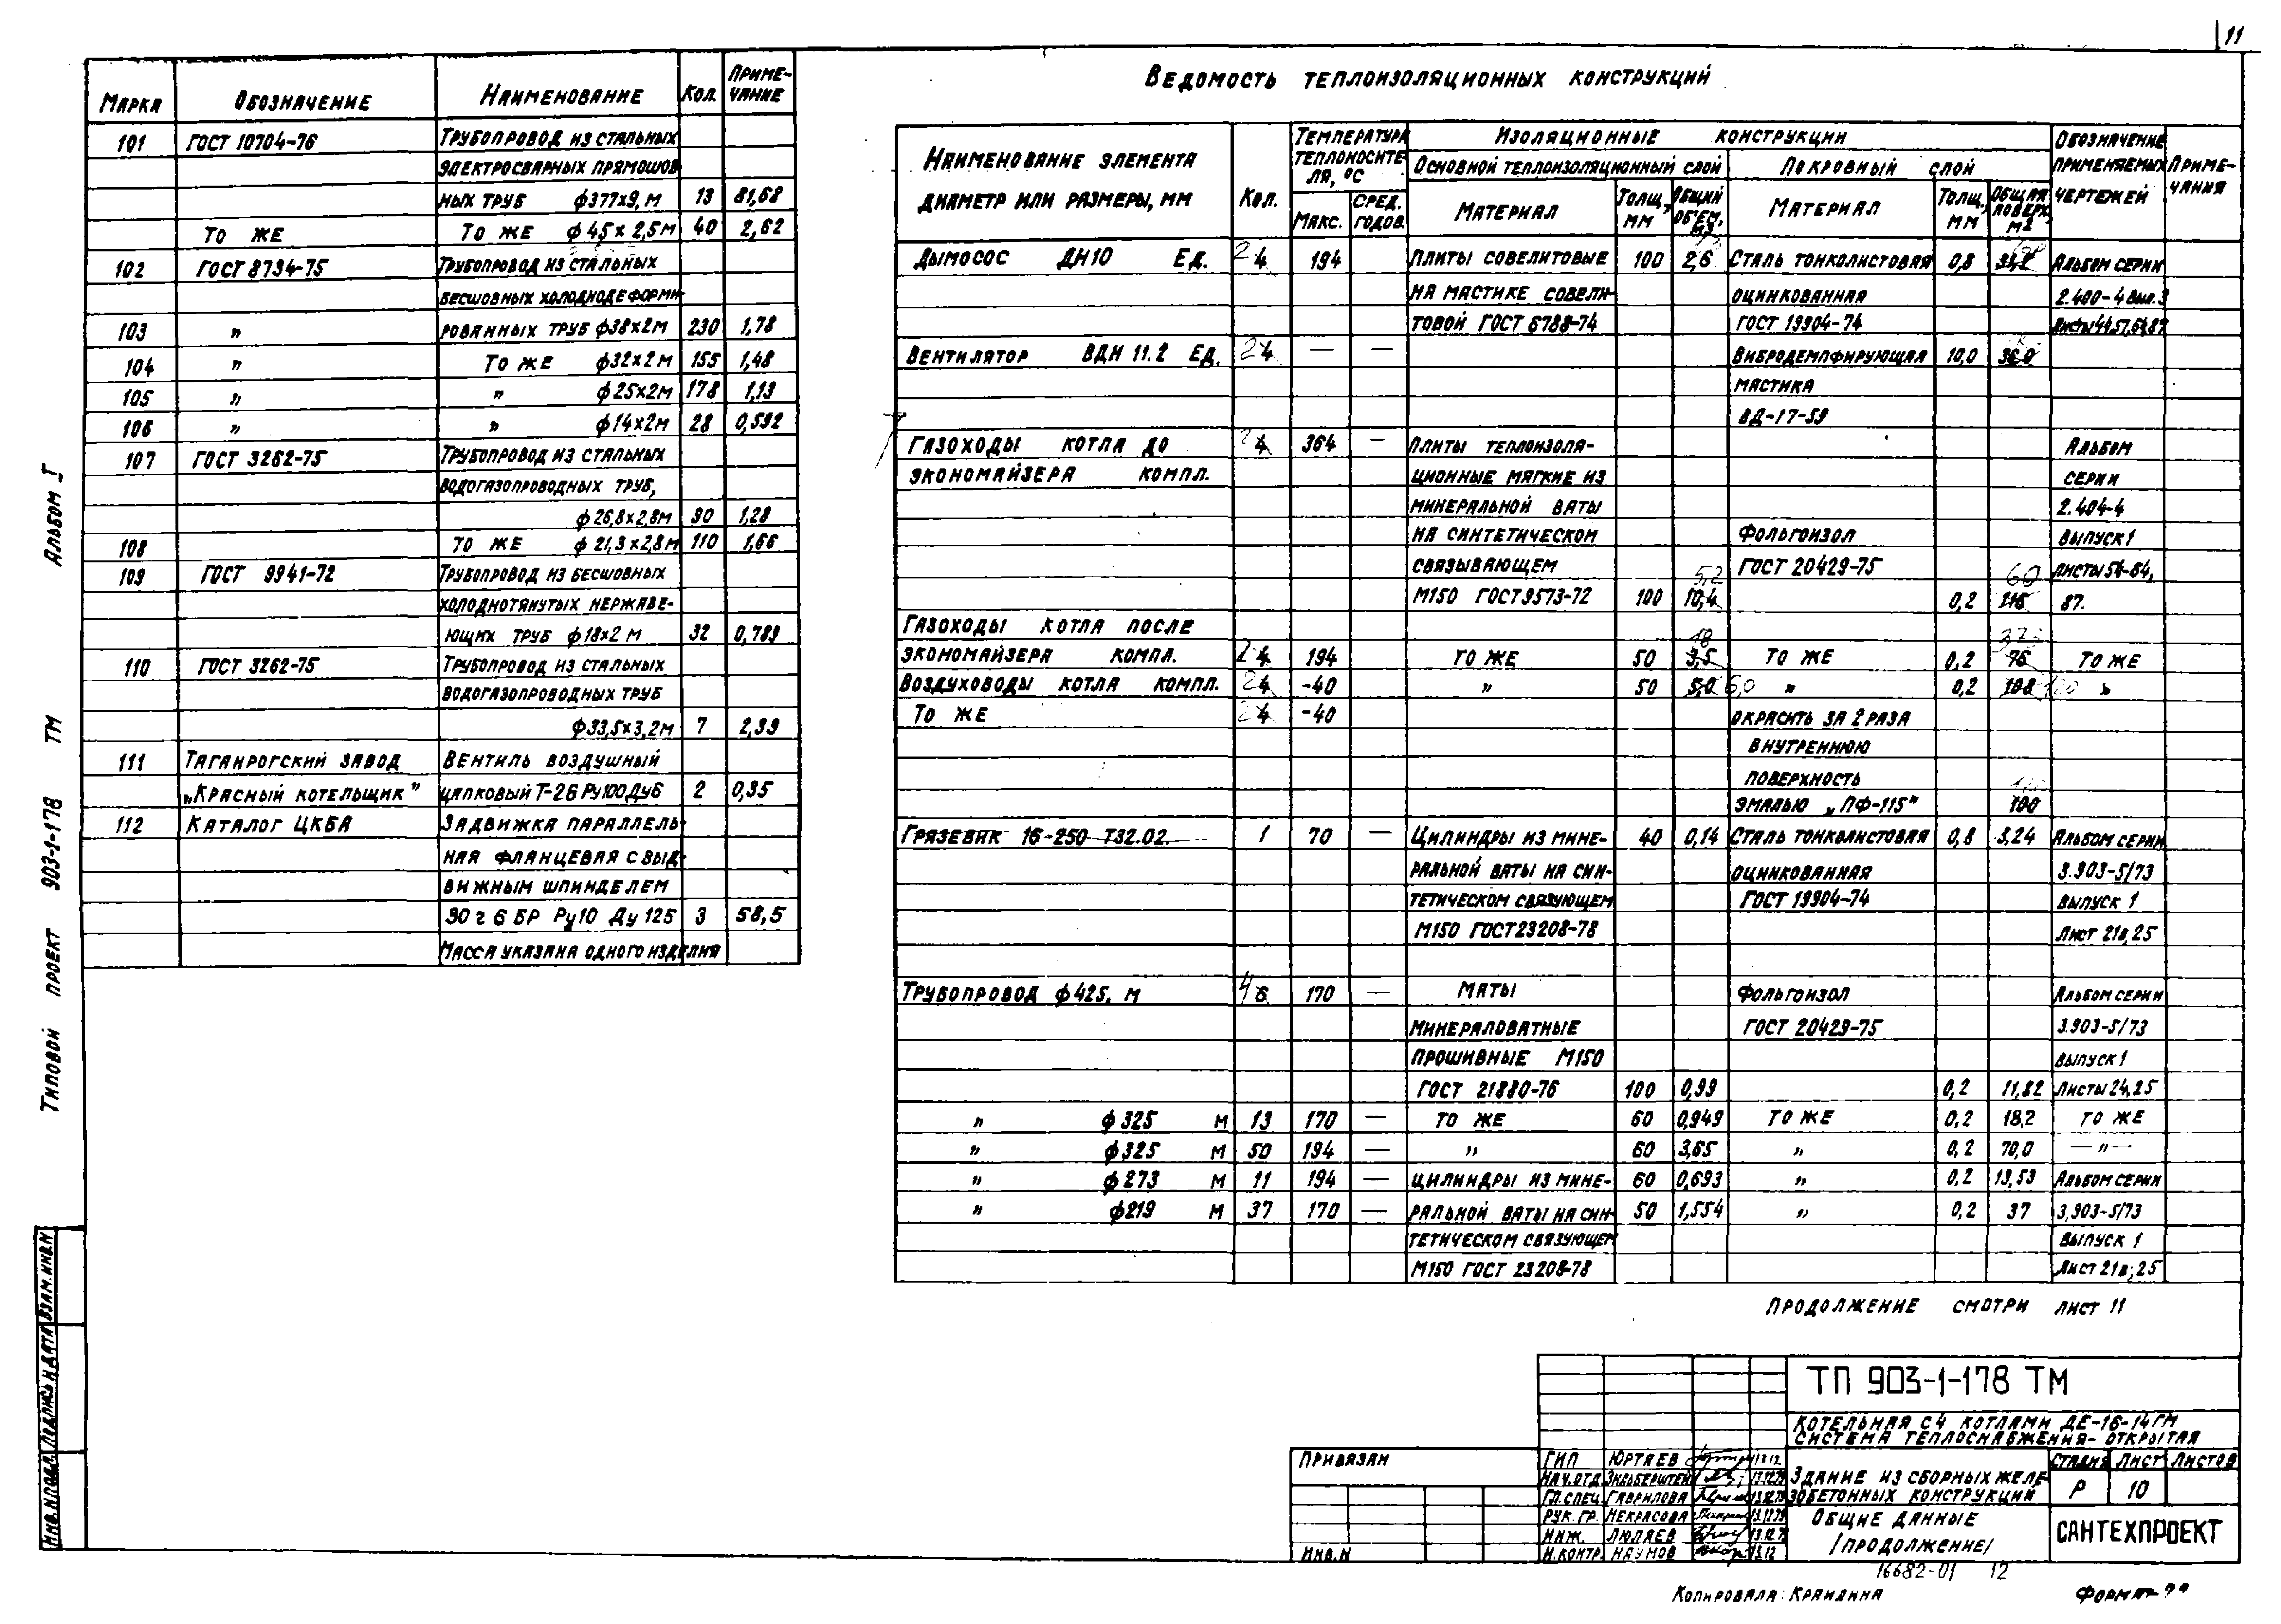 11
Марка Обозначение Наименование Кол. Приме-
чание
101 ГОСТ 10704-76 Трубопровод из стальных
электросварных прямошов-
ных труб ф377х9, м 13 81,68
То же То же ф45х2,5м 40 2,62
102 ГОСТ 8734-75 Трубопровод из стальных
бесшовных холоднодеформи-
103 " рованных труб ф38х2м 230 1,78
104 " То же ф32х2м 155 1,48
105 " " ф25х2м 178 1,13
106 " " ф14х2м 28 0,592
107 ГОСТ 3262-75 Трубопровод из стальных
водогазопроводных труб,
ф26,8х2,8м 90 1,28
108 То же ф21,3х2,8м 110 1,66
109 ГОСТ 9941-72 Трубопровод из бесшовных
холоднотянутых нержаве-
ющих труб ф18х2 м 32 0,789
110 ГОСТ 3262-75 Трубопровод из стальных
водогазопроводных труб
ф33,5х3,2м 7 2,99
111 Таганрогский завод Вентиль воздушный
„Красный котельщик" цапковый Т-26 Ру100 Ду6 2 0,35
112 Каталог ЦКБА Задвижка параллель-
ная фланцевая с выд-
вижным шпинделем
30ч6БР Ру10 Ду125 3 58,5
Масса указана одного изделия
Ведомость теплоизоляционных конструкций
Наименование элемента
диаметр или размеры, мм
Кол.
Температура
теплоносите-
ля, °С
Макс. Сред. годов.
Изоляционные конструкции
Основной теплоизоляционный слой Покровный слой
Материал Толщ., мм Общий объем, м3 Материал Толщ., мм Общая поверх. м2
Обозначение
применяемых
чертежей
Приме-
чания
Дымосос ДН10 Ед. 2 4 194 Плиты совелитовые 100 2,6 Сталь тонколистовая 0,8 34,2 Альбом серии
на мастике совели- оцинкованная 2.400-4 Вып.3
товой ГОСТ 6788-74 ГОСТ 19904-74 Листы 44,57,64,87
Вентилятор ВДН 11.2 Ед. 2 4 — — Вибродемпфирующая 10,0 36,0
мастика
ВД-17-59
Газоходы котла до 2 4 364 — Плиты теплоизоля- Альбом
экономайзера компл. ционные мягкие из серии
минеральной ваты 2.404-4
на синтетическом Фольгоизол выпуск 1
связывающем 5,2 ГОСТ 20429-75 60 листы 54-64,
М150 ГОСТ 9573-72 100 10,4 0,2 116 87.
Газоходы котла после 18
экономайзера компл. 2 4 194 То же 50 3,5 То же 0,2 76 То же
Воздуховоды котла компл. 2 4 -40 " 50 5,0 6,0 " 0,2 100 120 "
То же 2 4 -40 окрасить за 2 раза
внутреннюю
поверхность
эмалью „ПФ-115" 100
Грязевик 16-250 Т32.02. 1 70 — Цилиндры из мине- 40 0,14 Сталь тонколистовая 0,8 3,24 Альбом серии
ральной ваты на син- оцинкованная 3.903-5/73
тетическом связующем ГОСТ 19904-74 выпуск 1
М150 ГОСТ 23208-78 Лист 21в,25
Трубопровод ф425, м 4 6 170 — Маты Фольгоизол Альбом серии
минераловатные ГОСТ 20429-75 3.903-5/73
прошивные М150 выпуск 1
ГОСТ 21880-76 100 0,99 0,2 11,82 Листы 24,25
" ф325 м 13 170 — То же 60 0,949 То же 0,2 18,2 То же
" ф325 м 50 194 — " 60 3,65 " 0,2 70,0 — " —
" ф273 м 11 194 — цилиндры из мине- 60 0,693 " 0,2 13,53 Альбом серии
" ф219 м 37 170 — ральной ваты на син- 50 1,554 " 0,2 37 3.903-5/73
тетическом связующем Выпуск 1
М150 ГОСТ 23208-78 Лист 21в;25
Продолжение смотри лист 11
Альбом I
Типовой проект 903-1-178 ТМ
Инв.N подл. Подпись и дата Взам.инв.N
Привязан
Инв.N
ГИП Юртаев 13.12
Нач.отд Зильберштейн 13.12.79
Гл.спец. Гаврилова 13.12.79
Рук.гр. Некрасова 13.12.79
Инж. Люляев 13.12.79
Н.контр. Наумов 13.12
ТП 903-1-178 ТМ
Котельная с 4 котлами ДЕ-16-14ГМ
Система теплоснабжения - открытая
Здание из сборных желе-
зобетонных конструкций
Стадия Лист Листов
Р 10
Общие данные
/продолжение/
САНТЕХПРОЕКТ
16682-01 12
Копировала: Краидина
Формат 22